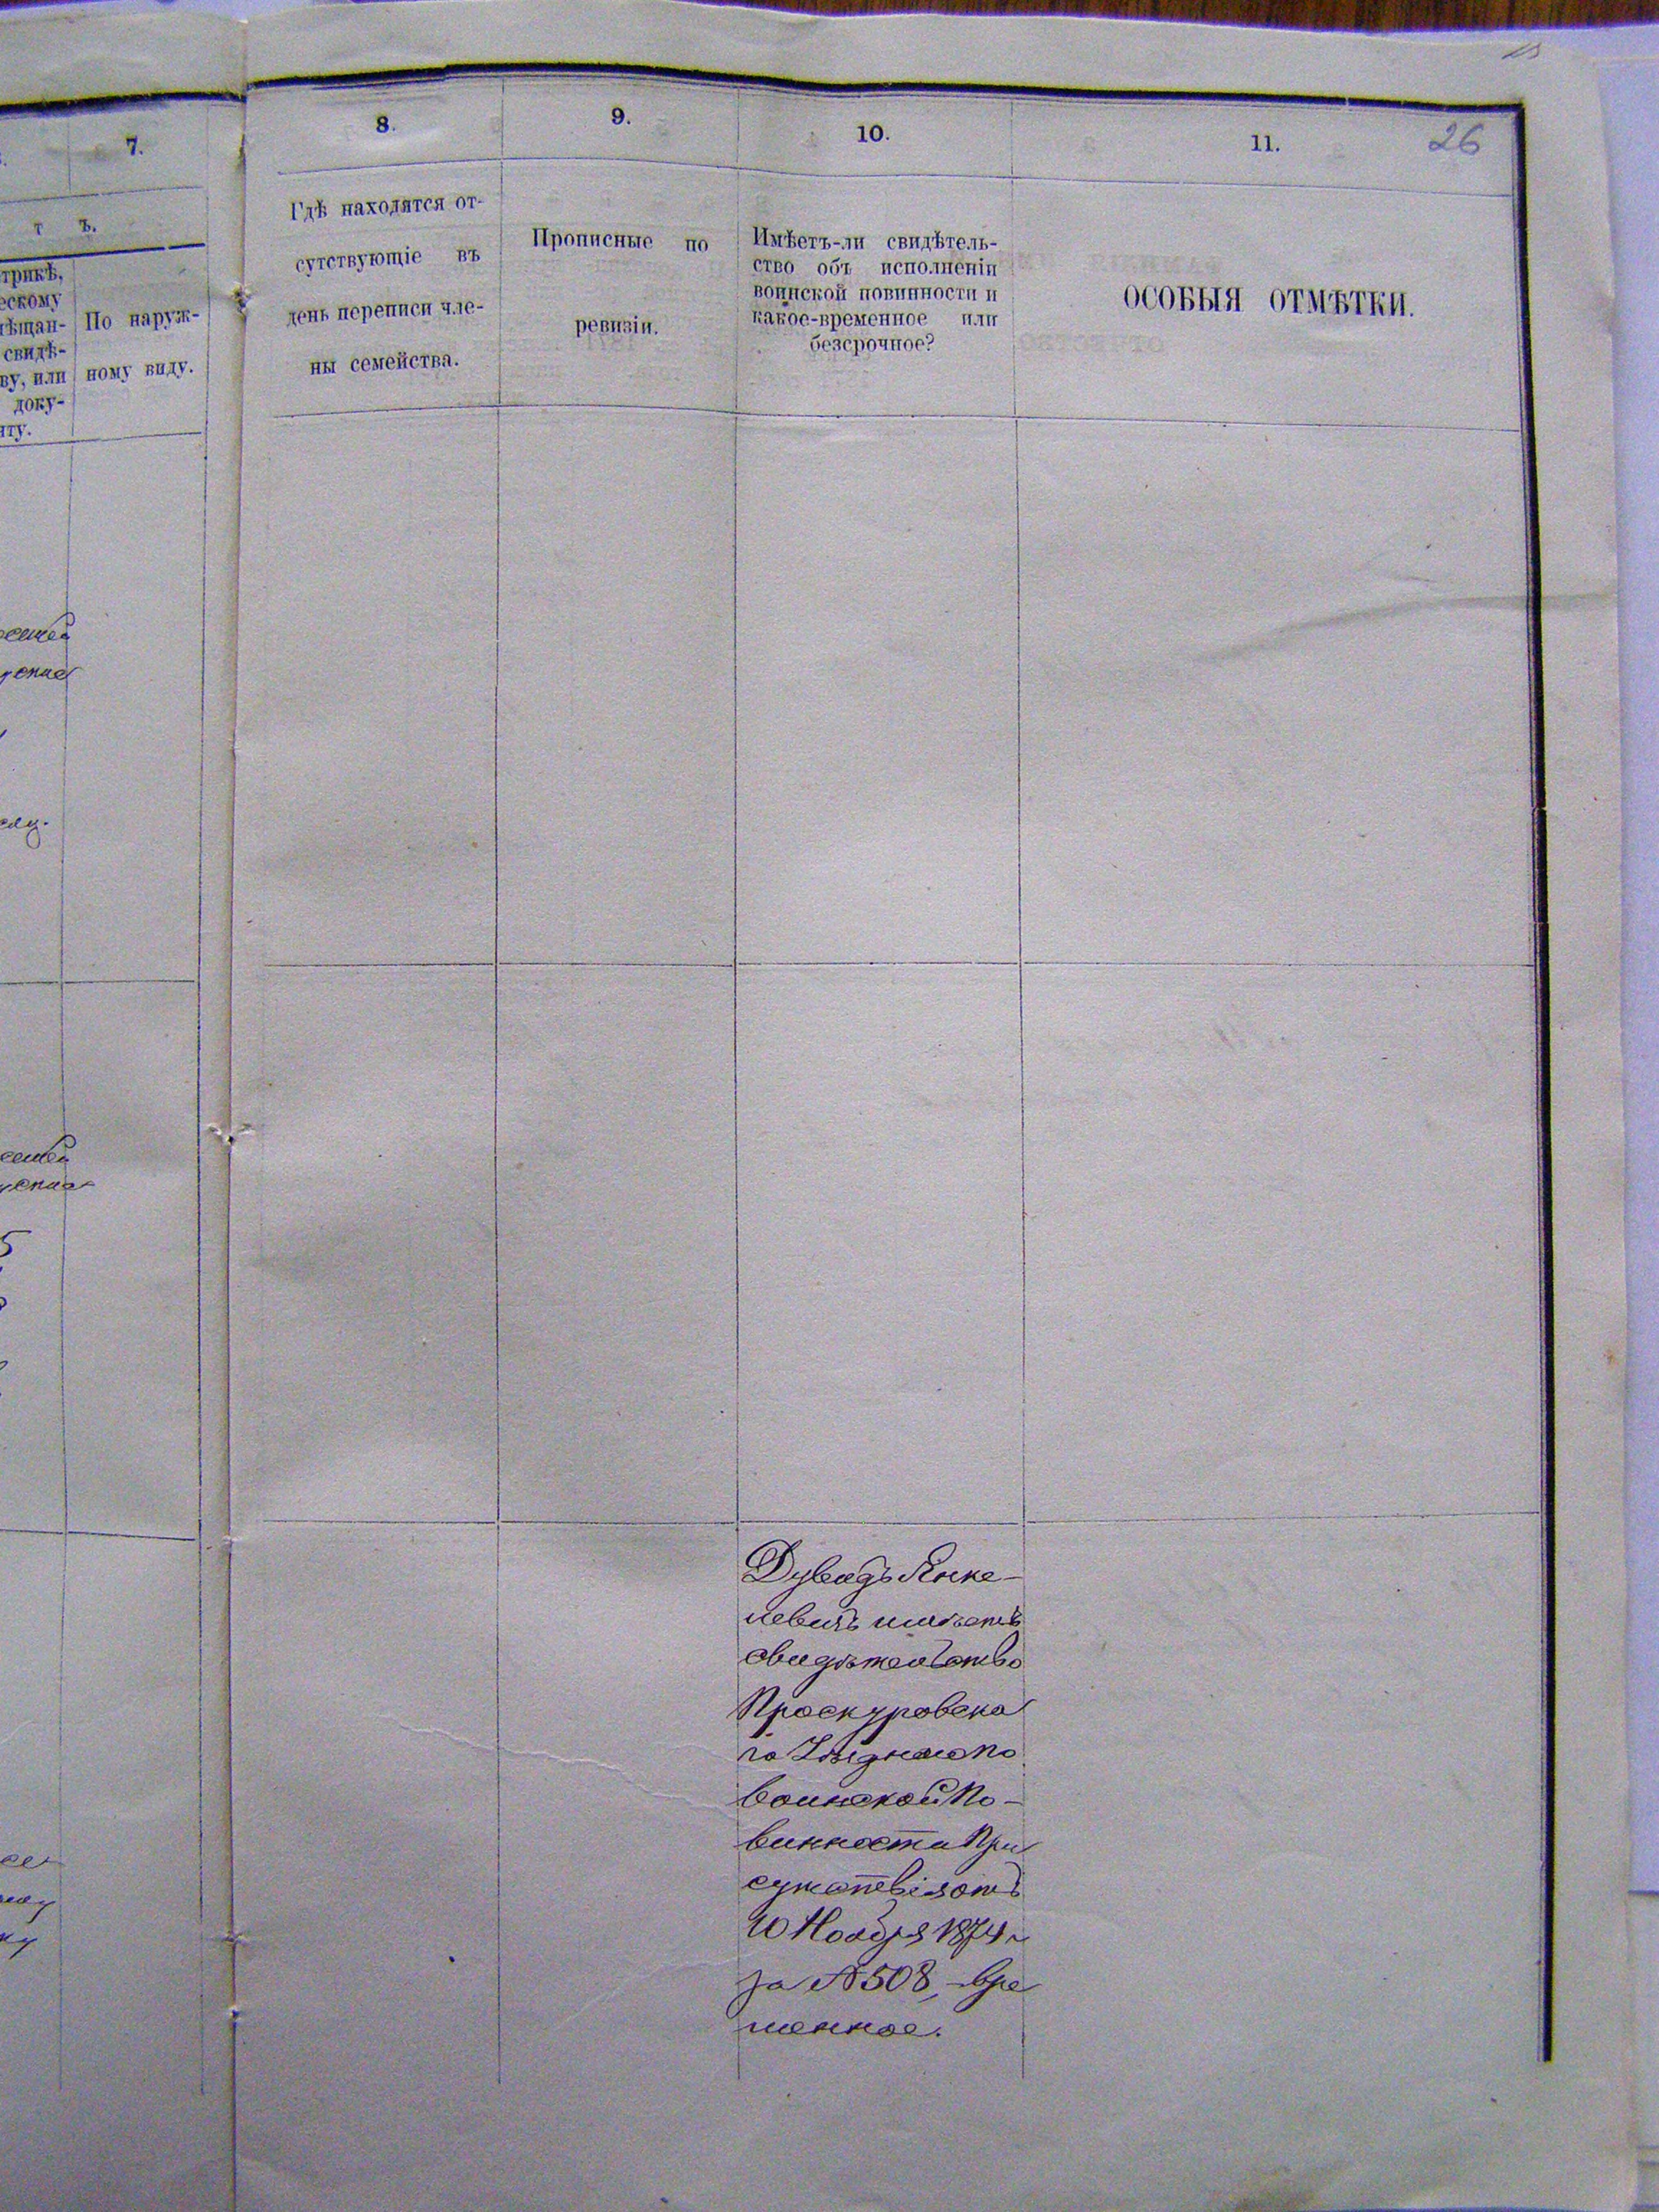 7.
8.
9.
10.
11.
26
т ъ.
трикѣ,
ескому
ѣщан-
свидѣ-
ву, или
доку-
нту.
По наруж-
ному виду.
Гдѣ находятся от-
сутствующіе въ
день переписи чле-
ны семейства.
Прописные по
ревизіи.
Имѣетъ-ли свидѣтель-
ство объ исполненіи
воинской повинности и
какое-временное или
безсрочное?
ОСОБЫЯ ОТМѢТКИ.
Дувидъ Янке-
левичъ имѣетъ
свидѣтельство
Проскуровска
го Уѣзднаго по
воинской По-
винности При
сутствія отъ
10 Ноября 1874 г
за № 508, -вре
менное.